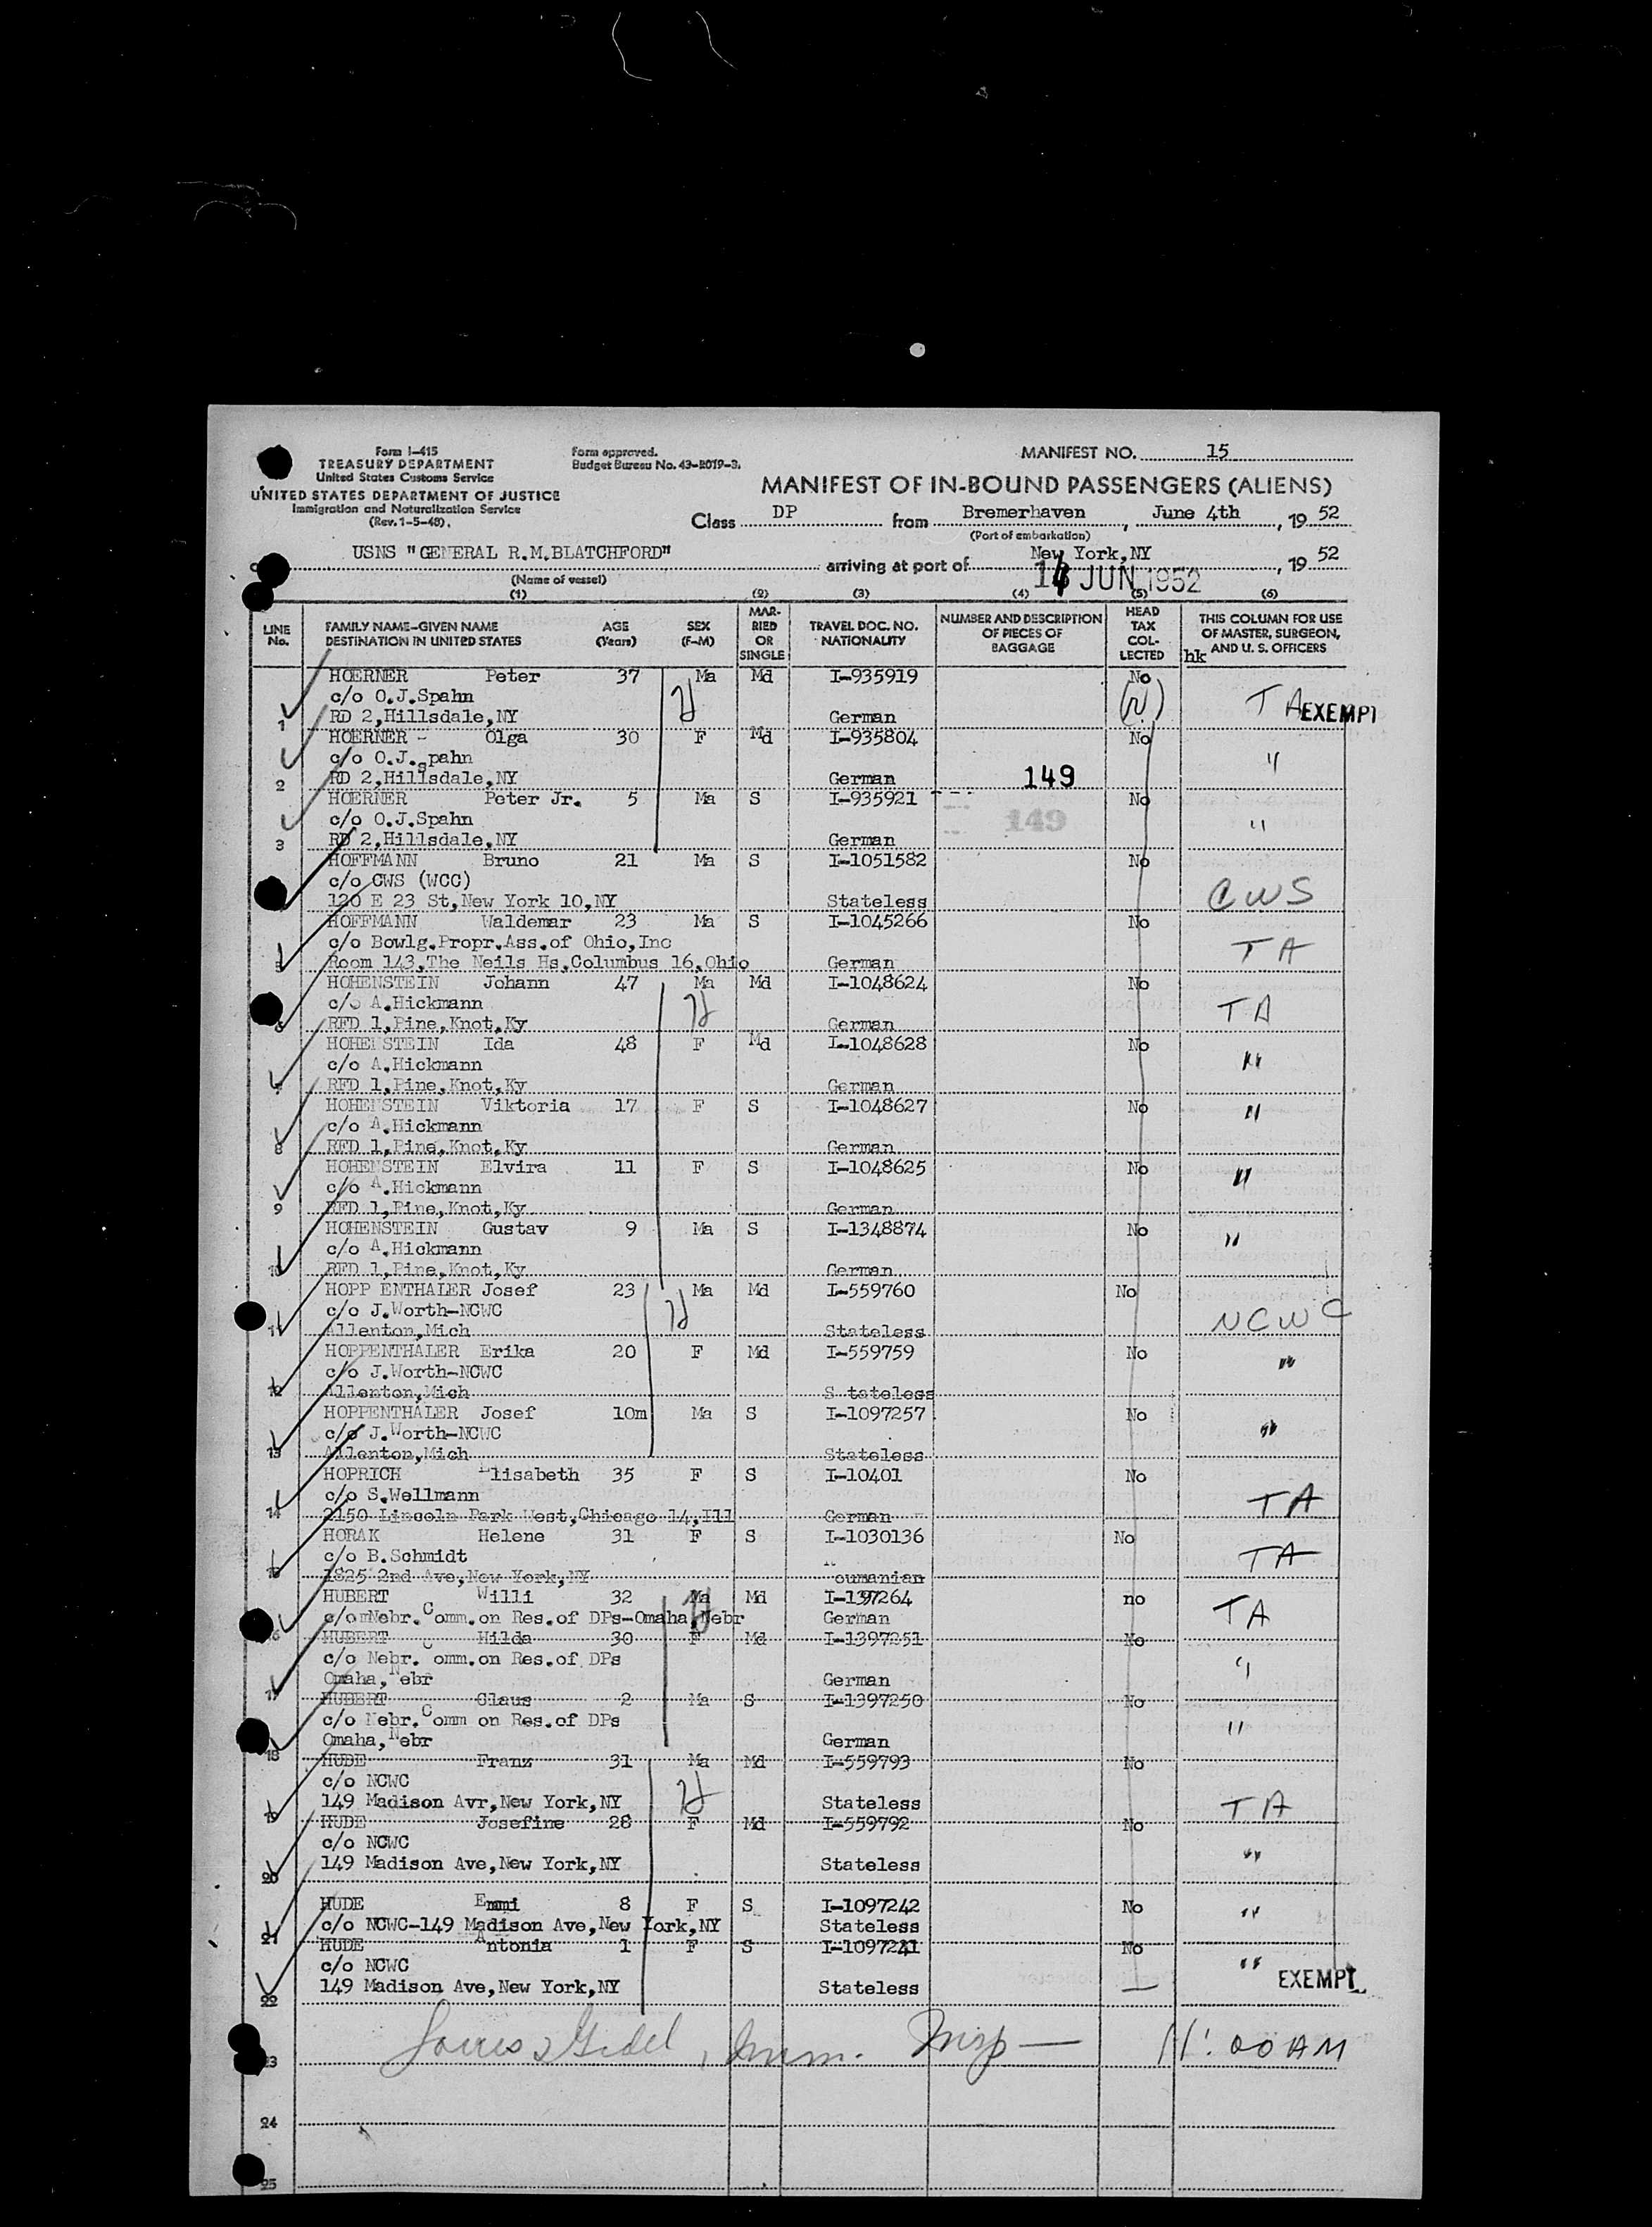 Form I-415
TREASURY DEPARTMENT
United States Customs Service
UNITED STATES DEPARTMENT OF JUSTICE
Immigration and Naturalization Service
(Rev. 1-5-48)
Form approved.
Budget Bureau No. 43-R019-3.
MANIFEST NO. 15
MANIFEST OF IN-BOUND PASSENGERS (ALIENS)
Class DP from Bremerhaven, June 4th, 19 52
(Port of embarkation)
USNS "GENERAL R.M.BLATCHFORD" arriving at port of New York,NY, 19 52
(Name of vessel)
JUN 1952
(1) (2) (3) (4) (5) (6)
LINE No. FAMILY NAME-GIVEN NAME DESTINATION IN UNITED STATES AGE (Years) SEX (F-M) MARRIED OR SINGLE TRAVEL DOC. NO. NATIONALITY NUMBER AND DESCRIPTION OF PIECES OF BAGGAGE HEAD TAX COLLECTED THIS COLUMN FOR USE OF MASTER, SURGEON, AND U. S. OFFICERS
hk
HOERNER Peter 37 Ma Md I-935919 No
c/o O.J.Spahn
1 RD 2,Hillsdale,NY German TA EXEMPT
HOERNER - Olga 30 F Md I-935804 No
c/o O.J. Spahn "
2 RD 2,Hillsdale,NY German 149
HOERNER Peter Jr. 5 Ma S I-935921 No
c/o O.J.Spahn 149 "
3 RD 2,Hillsdale,NY German
HOFFMANN Bruno 21 Ma S I-1051582 No
c/o CWS (WCC)
120 E 23 St,New York 10,NY Stateless CWS
HOFFMANN Waldemar 23 Ma S I-1045266 No
c/o Bowlg.Propr.Ass.of Ohio,Inc TA
5 Room 143,The Neils Hs,Columbus 16,Ohio German
HOHENSTEIN Johann 47 Ma Md I-1048624 No
c/o A.Hickmann TA
6 RFD 1,Pine,Knot,Ky German
HOHENSTEIN Ida 48 F Md I-1048628 No
c/o A.Hickmann "
7 RFD 1,Pine,Knot,Ky German
HOHENSTEIN Viktoria 17 F S I-1048627 No
c/o A.Hickmann "
8 RFD 1,Pine,Knot,Ky German
HOHENSTEIN Elvira 11 F S I-1048625 No
c/o A.Hickmann "
9 RFD 1,Pine,Knot,Ky German
HOHENSTEIN Gustav 9 Ma S I-1348874 No
c/o A.Hickmann "
10 RFD 1,Pine,Knot,Ky German
HOPP ENTHALER Josef 23 Ma Md I-559760 No
c/o J.Worth-NCWC NCWC
11 Allenton,Mich Stateless
HOPPENTHALER Erika 20 F Md I-559759 No
c/o J.Worth-NCWC "
12 Allenton,Mich S tateless
HOPPENTHALER Josef 10m Ma S I-1097257 No
c/o J.Worth-NCWC "
13 Allenton,Mich Stateless
HOPRICH Elisabeth 35 F S I-10401 No
c/o S.Wellmann TA
14 2150 Lincoln Park West,Chicago 14,Ill German
HORAK Helene 31 F S I-1030136 No
c/o B.Schmidt TA
15 1825 2nd Ave,New York,NY oumanian
HUBERT Willi 32 Ma Md I-137264 no
c/o Nebr. Comm.on Res.of DPs-Omaha,Nebr German TA
16 HUBERT Hilda 30 F Md I-1397251 No
c/o Nebr. Comm.on Res.of DPs "
Omaha, Nebr German
17 HUBERT Claus 2 Ma S I-1397250 No
c/o Nebr. Comm on Res.of DPs "
Omaha, Nebr German
18 HUDE Franz 31 Ma Md I-559793 No
c/o NCWC
149 Madison Avr,New York,NY Stateless TA
19 HUDE Josefine 28 F Md I-559792 No
c/o NCWC "
149 Madison Ave,New York,NY Stateless
20
HUDE Emmi 8 F S I-1097242 No
c/o NCWC-149 Madison Ave,New York,NY Stateless "
21 HUDE Antonia 1 F S I-1097241 No
c/o NCWC "
149 Madison Ave,New York,NY Stateless EXEMPT
22
Imm. Insp 11:00 AM
23
24
25